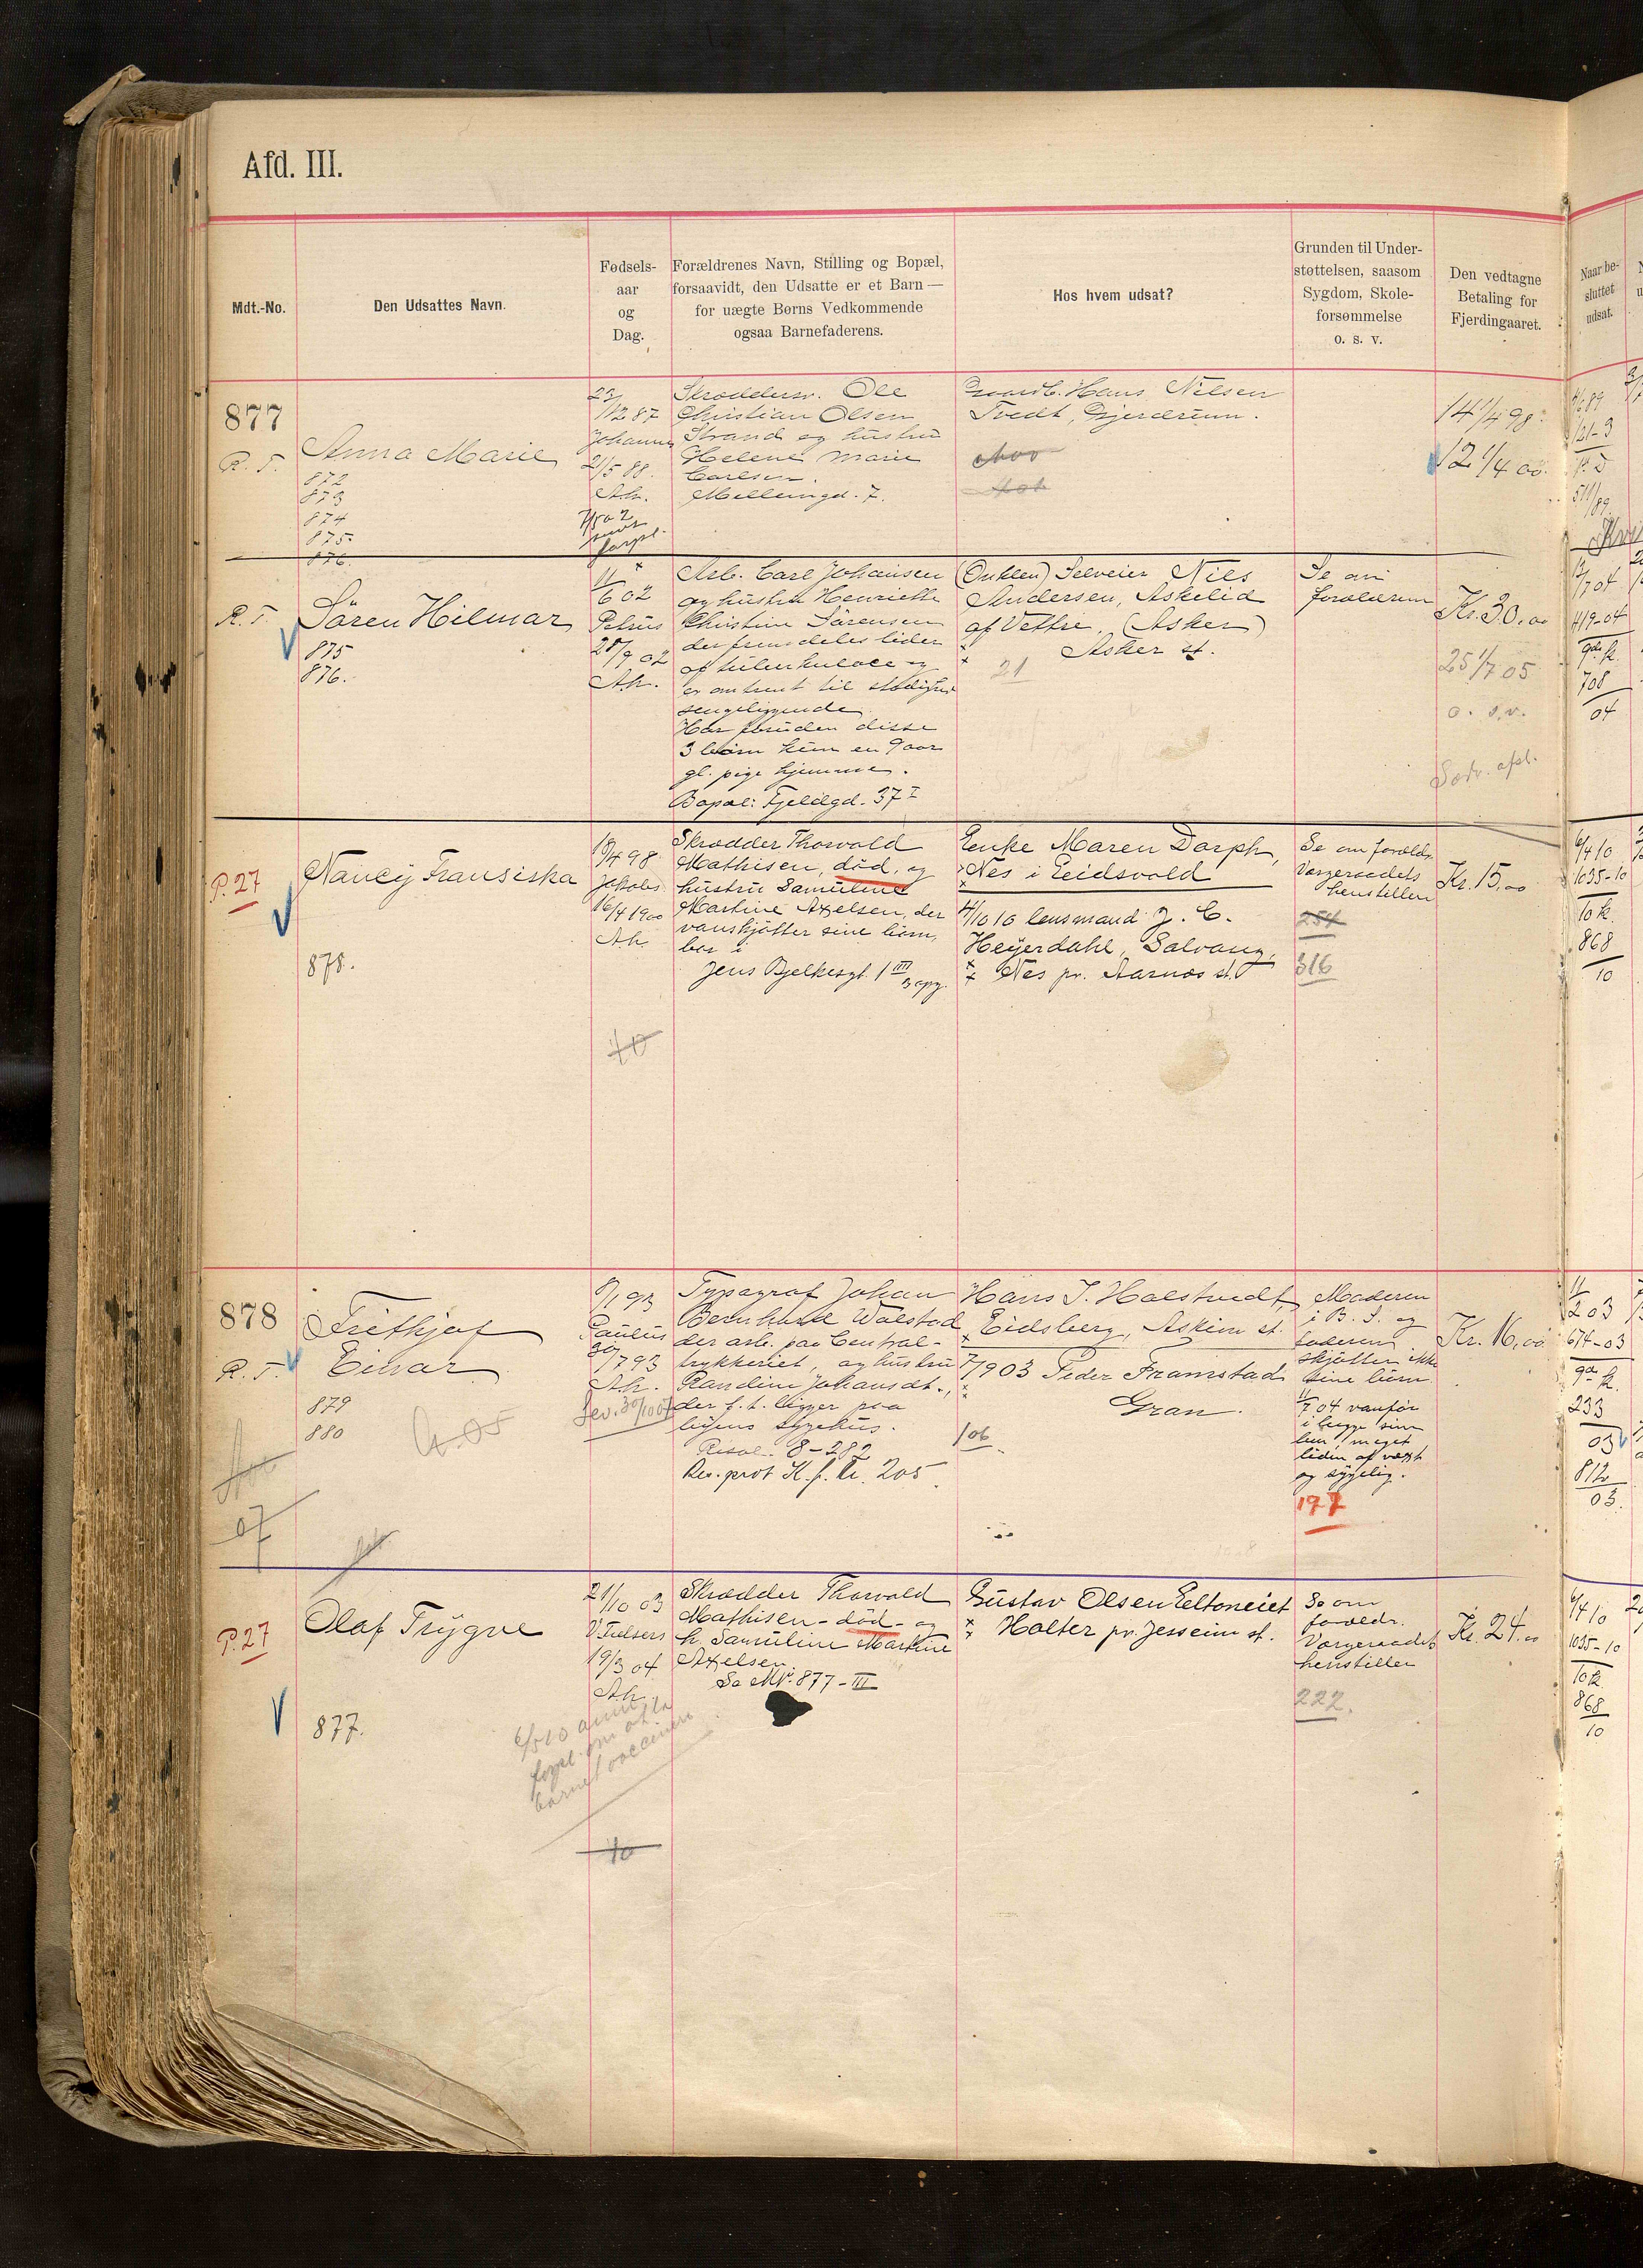 Afd. III.
Mdt.-No.
Den Udsattes Navn.
Fødsels-
aar
og
Dag.
Forældrenes Navn, Stilling og Bopæl,
forsaavidt, den Udsatte er et Barn —
for uægte Børns Vedkommende
ogsaa Barnefaderens.
Hos hvem udsat?
Grunden til Under-
støttelsen, saasom
Sygdom, Skole-
forsømmelse
o. s. v.
Den vedtagne
Betaling for
Fjerdingaaret.
Naar be-
sluttet
udsat.
877
R. F.
Anna Marie
872
873
874
875.
876.
23/
12 87
Johannes
21/5 88.
Ah.
Skræddersv. Ole
Christian Olsen
Strand og hustru
Helene Marie
Carlsen.
Møllergd. 7.
Gaardb. Hans Nilsen
Tvedt, Gjerdrum.
14 1/4 98.
12 1/4 00.
R. F.
Sören Hilmar
875
876.
11/
6 02
Petrus
28/9 02
Ah.
Arb. Carl Johansen
og hustru Henriette
Christine Sörensen
der fremdeles lider
af tuberkulose og
er omtrent til stadighed
sengeliggende.
Har foruden disse
3 børn kun en 9 aar
gl. pige hjemme.
Bopæl: Fjeldgd. 37 I
(Onklen) Selveier Nils
Andersen, Askelid
af Vettre. (Asker)
Asker st.
21
Se om
forældrene
Kr. 30.00
25 1/7 05
o. s. v.
12/7 04
419-04
9de k.
708
04
P. 27
Nancy Fransiska
878.
18/4 98
Jakobs
16/4 1900
Ah.
Skrædder Thorvald
Mathisen, död, og
hustru Samuline
Martine Axelsen, der
vanskjötter sine børn,
bor i
Jens Bjelkesgt. 1 III
Enke Maren Dorph,
Nes i Eidsvold
4/10 10 lensmand J. C.
Heyerdahl, Solvang,
Nes pr. Aarnæs st.
Se om foreldr.
Vergeraadets
henstillen
254
316
Kr. 15.00
6/4 10
1035-10
10 k.
868
10
10
878
R. F.
Frithjof
Einar
879
880
07
8/1 93
Paulus
30/
7 93
Ah.
Typograf Johan
Bernhard Wolstad
der arb. paa Central-
trykkeriet, og hustru
Randine Johansdt.,
der f. t. ligger paa
byens sygehus.
Resol. 8-282
Rev. prot K. f. k. 205.
Hans J. Holstvedt,
Eidsberg, Askim st.
7/9 03 Peder Framstad
Gran.
106
Moderen
i B. S. og
faderen
skjötter ikke
sine børn.
11/
7 04 vanför
i begge sine
ben, meget
liden af vext
og sygelig.
197
Kr. 16.00
11/
2 03
674-03
9de k.
233
03
812
03.
P. 27
Olaf Trygve
877.
21/10 03
V. Fulsers
19/3 04
Ah.
Skrædder Thorvald
Mathisen - död - og
h. Samuline Martine
Axelsen.
Se Mt. 877-III
Gustav Olsen Eeltoneiet
Holter pr. Jessheim st.
Se om
foreldr.
Vergeraadets
henstillen
222.
Kr. 24.00
6/4 10
1035-10
10 k.
868
10
10